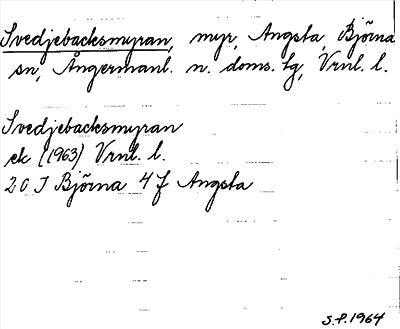 Svedjebacksmyran, myr, Angsta, Björna
sn, Ångermanl. n. doms. tg, Vrnl. l.
Svedjebacksmyran
ek (1963) Vrnl. l.
20 J Björna 4 f Angsta
S.P. 1964